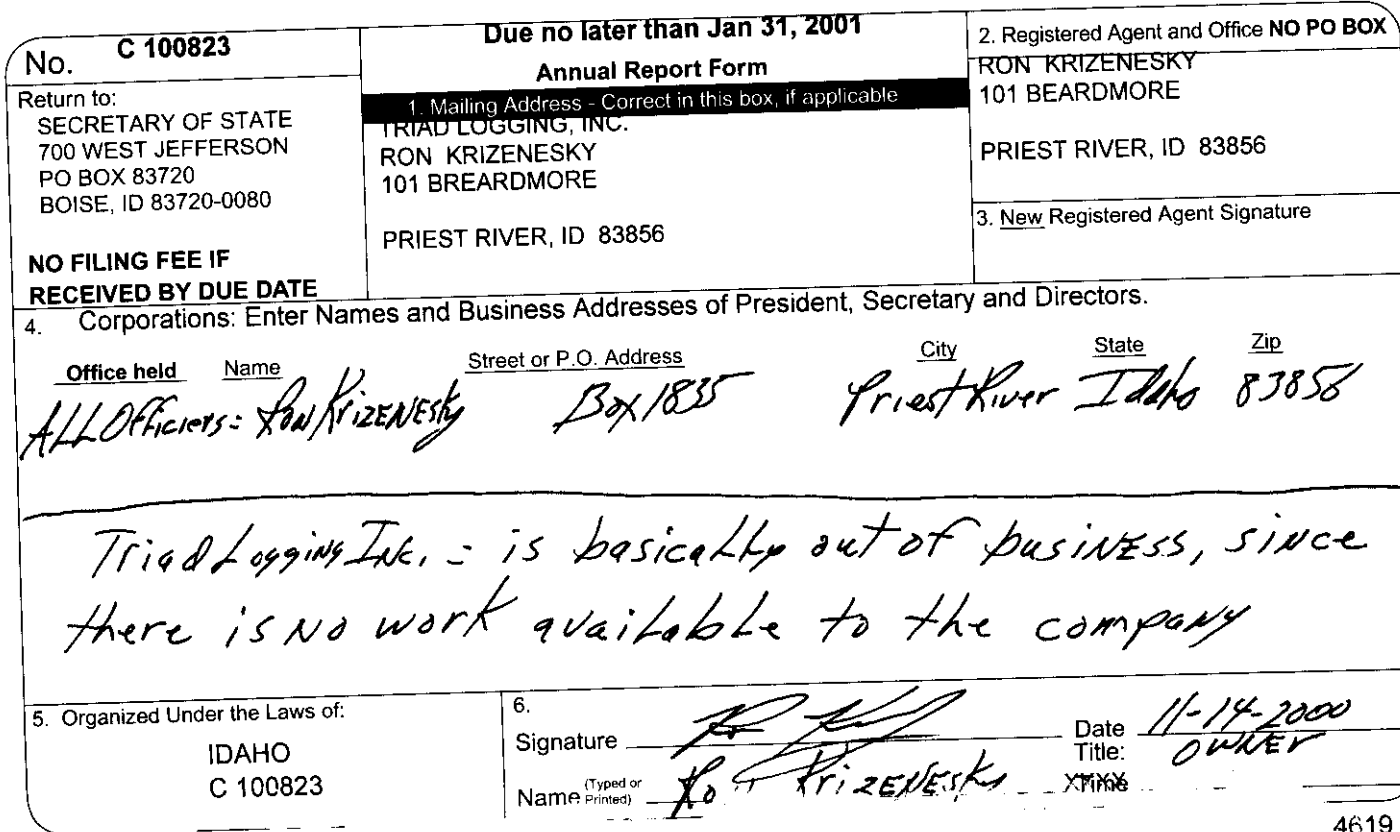 No. C 100823
Return to:
SECRETARY OF STATE
700 WEST JEFFERSON
PO BOX 83720
BOISE, ID 83720-0080
NO FILING FEE IF
RECEIVED BY DUE DATE
Due no later than Jan 31, 2001
Annual Report Form
1. Mailing Address - Correct in this box, if applicable
TRIAD LOGGING, INC.
RON KRIZENESKY
101 BREARDMORE
PRIEST RIVER, ID 83856
2. Registered Agent and Office NO PO BOX
RON KRIZENESKY
101 BEARDMORE
PRIEST RIVER, ID 83856
3. New Registered Agent Signature
4. Corporations: Enter Names and Business Addresses of President, Secretary and Directors.
Office held Name Street or P.O. Address City State Zip
ALL Officiers: Ron Krizenesky Box 1835 Priest River Idaho 83856
Triad Logging Inc. = is basically out of business, since
there is no work available to the company
5. Organized Under the Laws of:
IDAHO
C 100823
6.
Signature Date 11-14-2000
Title: owner
Name (Typed or Printed) Ron Krizenesky
4619